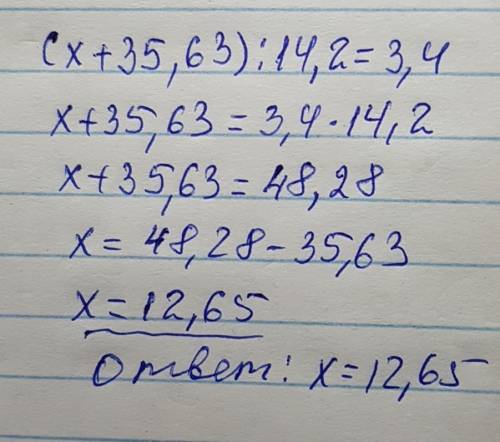 (x+35,63):14,2=3,4
x+35,63=3,4·14,2
x+35,63=48,28
x=48,28-35,63
x=12,65
Ответ: x=12,65